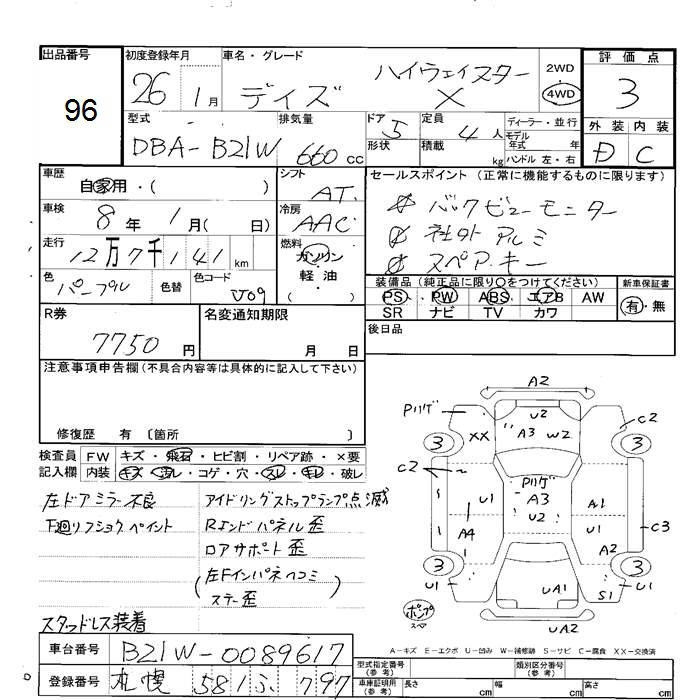 出品番号
96
初度登録年月
26 1月
車名・グレード
デイズ ハイウェイスター X
2WD
4WD
評価点
3
外装 内装
D C
型式
DBA-B21W
排気量
660 cc
ドア 5
形状
定員 4 人
積載 kg
ディーラー・並行
モデル年式 年
ハンドル 左・右
車歴
自家用・( )
シフト
AT
セールスポイント(正常に機能するものに限ります)
バックビューモニター
社外アルミ
スペアキー
車検
8年 1月( 日)
冷房
AAC
走行
12万7千141 km
燃料
ガソリン
軽油
( )
色
パープル
色替
色コード
装備品(純正品に限り○をつけてください)
PS PW ABS エアB AW
SR ナビ TV カワ
新車保証書
有・無
R券
7750 円
名変通知期限
月 日
後日品
注意事項申告欄(不具合内容等は具体的に記入して下さい)
修復歴 有 〔箇所 〕
検査員記入欄
FW キズ・飛石・ヒビ割・リペア跡・×要
内装 キズ・汚レ・コゲ・穴・スレ・キレ・破レ
左ドアミラー不良
下廻リフショク ペイント
スタッドレス装着
アイドリングストップランプ点滅
Rエンドパネル歪
ロアサポート歪
(左Fインパネヘコミ
ステー歪)
A2
Pハゲ
XX
U2
A3
W2
C2
3
3
C2
U1
A4
Pハゲ
A3
U2
A1
U1
A2
C3
3
3
U1
UA1
S1
U1
UA2
ポンプ
スペア
A-キズ E-エクボ U-凹み W-補修跡 S-サビ C-腐食 XX-交換済
車台番号
B21W-0089617
登録番号
札幌 581 ふ 797
型式指定番号(参考)
類別区分番号(参考)
車庫証明用(参考)
長さ cm
幅 cm
高さ cm